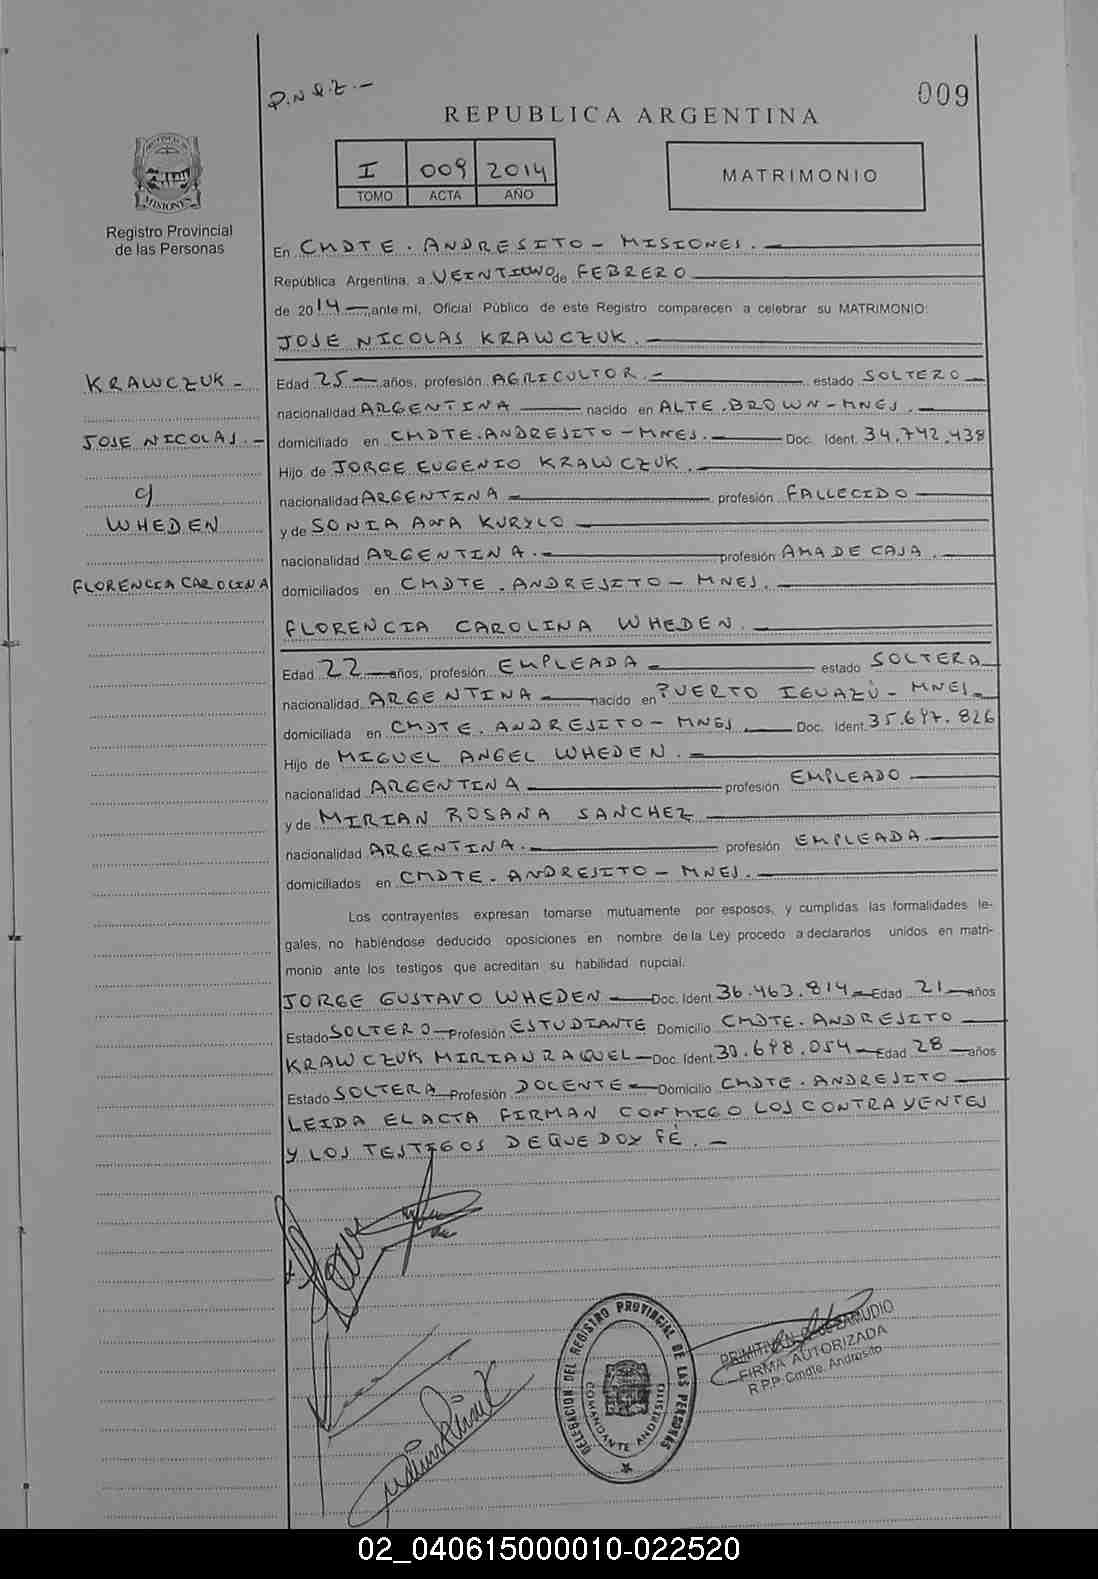 P.N.R.Z.-
009
REPUBLICA ARGENTINA
I 009 2014
TOMO ACTA AÑO
MATRIMONIO
PROVINCIA
MISIONES
Registro Provincial
de las Personas
En CMDTE. ANDRESITO - MISIONES.
República Argentina, a VEINTIUNO de FEBRERO
de 2014 ante mí, Oficial Público de este Registro comparecen a celebrar su MATRIMONIO:
JOSE NICOLAS KRAWCZUK.
KRAWCZUK -
JOSE NICOLAS. -
c/
WHEDEN
FLORENCIA CAROLINA
Edad 25 años, profesión AGRICULTOR.- estado SOLTERO
nacionalidad ARGENTINA nacido en ALTE. BROWN-MNES.
domiciliado en CMDTE. ANDRESITO - MNES. Doc. Ident. 34.742.438
Hijo de JORGE EUGENIO KRAWCZUK.
nacionalidad ARGENTINA profesión FALLECIDO
y de SONIA ANA KURYLO
nacionalidad ARGENTINA. profesión AMA DE CASA.
domiciliados en CMDTE. ANDRESITO - MNES.
FLORENCIA CAROLINA WHEDEN.
Edad 22 años, profesión EMPLEADA estado SOLTERA
nacionalidad ARGENTINA nacido en PUERTO IGUAZÚ - MNES.
domiciliada en CMDTE. ANDRESITO - MNES. Doc. Ident. 35.697.826
Hijo de MIGUEL ANGEL WHEDEN.
nacionalidad ARGENTINA profesión EMPLEADO
y de MIRIAN ROSANA SANCHEZ
nacionalidad ARGENTINA. profesión EMPLEADA.
domiciliados en CMDTE. ANDRESITO - MNES.
Los contrayentes expresan tomarse mutuamente por esposos, y cumplidas las formalidades le-
gales, no habiéndose deducido oposiciones en nombre de la Ley procedo a declararlos unidos en matri-
monio ante los testigos que acreditan su habilidad nupcial.
JORGE GUSTAVO WHEDEN Doc. Ident 36.463.814 Edad 21 años
Estado SOLTERO Profesión ESTUDIANTE Domicilio CMDTE. ANDRESITO
KRAWCZUK MIRIAN RAQUEL Doc. Ident. Edad 28 años
Estado SOLTERA Profesión DOCENTE Domicilio CMDTE. ANDRESITO
LEIDA EL ACTA FIRMAN CONMIGO LOS CONTRAYENTES
Y LOS TESTIGOS DE QUE DOY FÉ. -
DELEGACION DEL REGISTRO PROVINCIAL DE LAS PERSONAS
COMANDANTE ANDRESITO
ZAMUDIO
FIRMA AUTORIZADA
R.P.P. Cmdte. Andresito
02_040615000010-022520